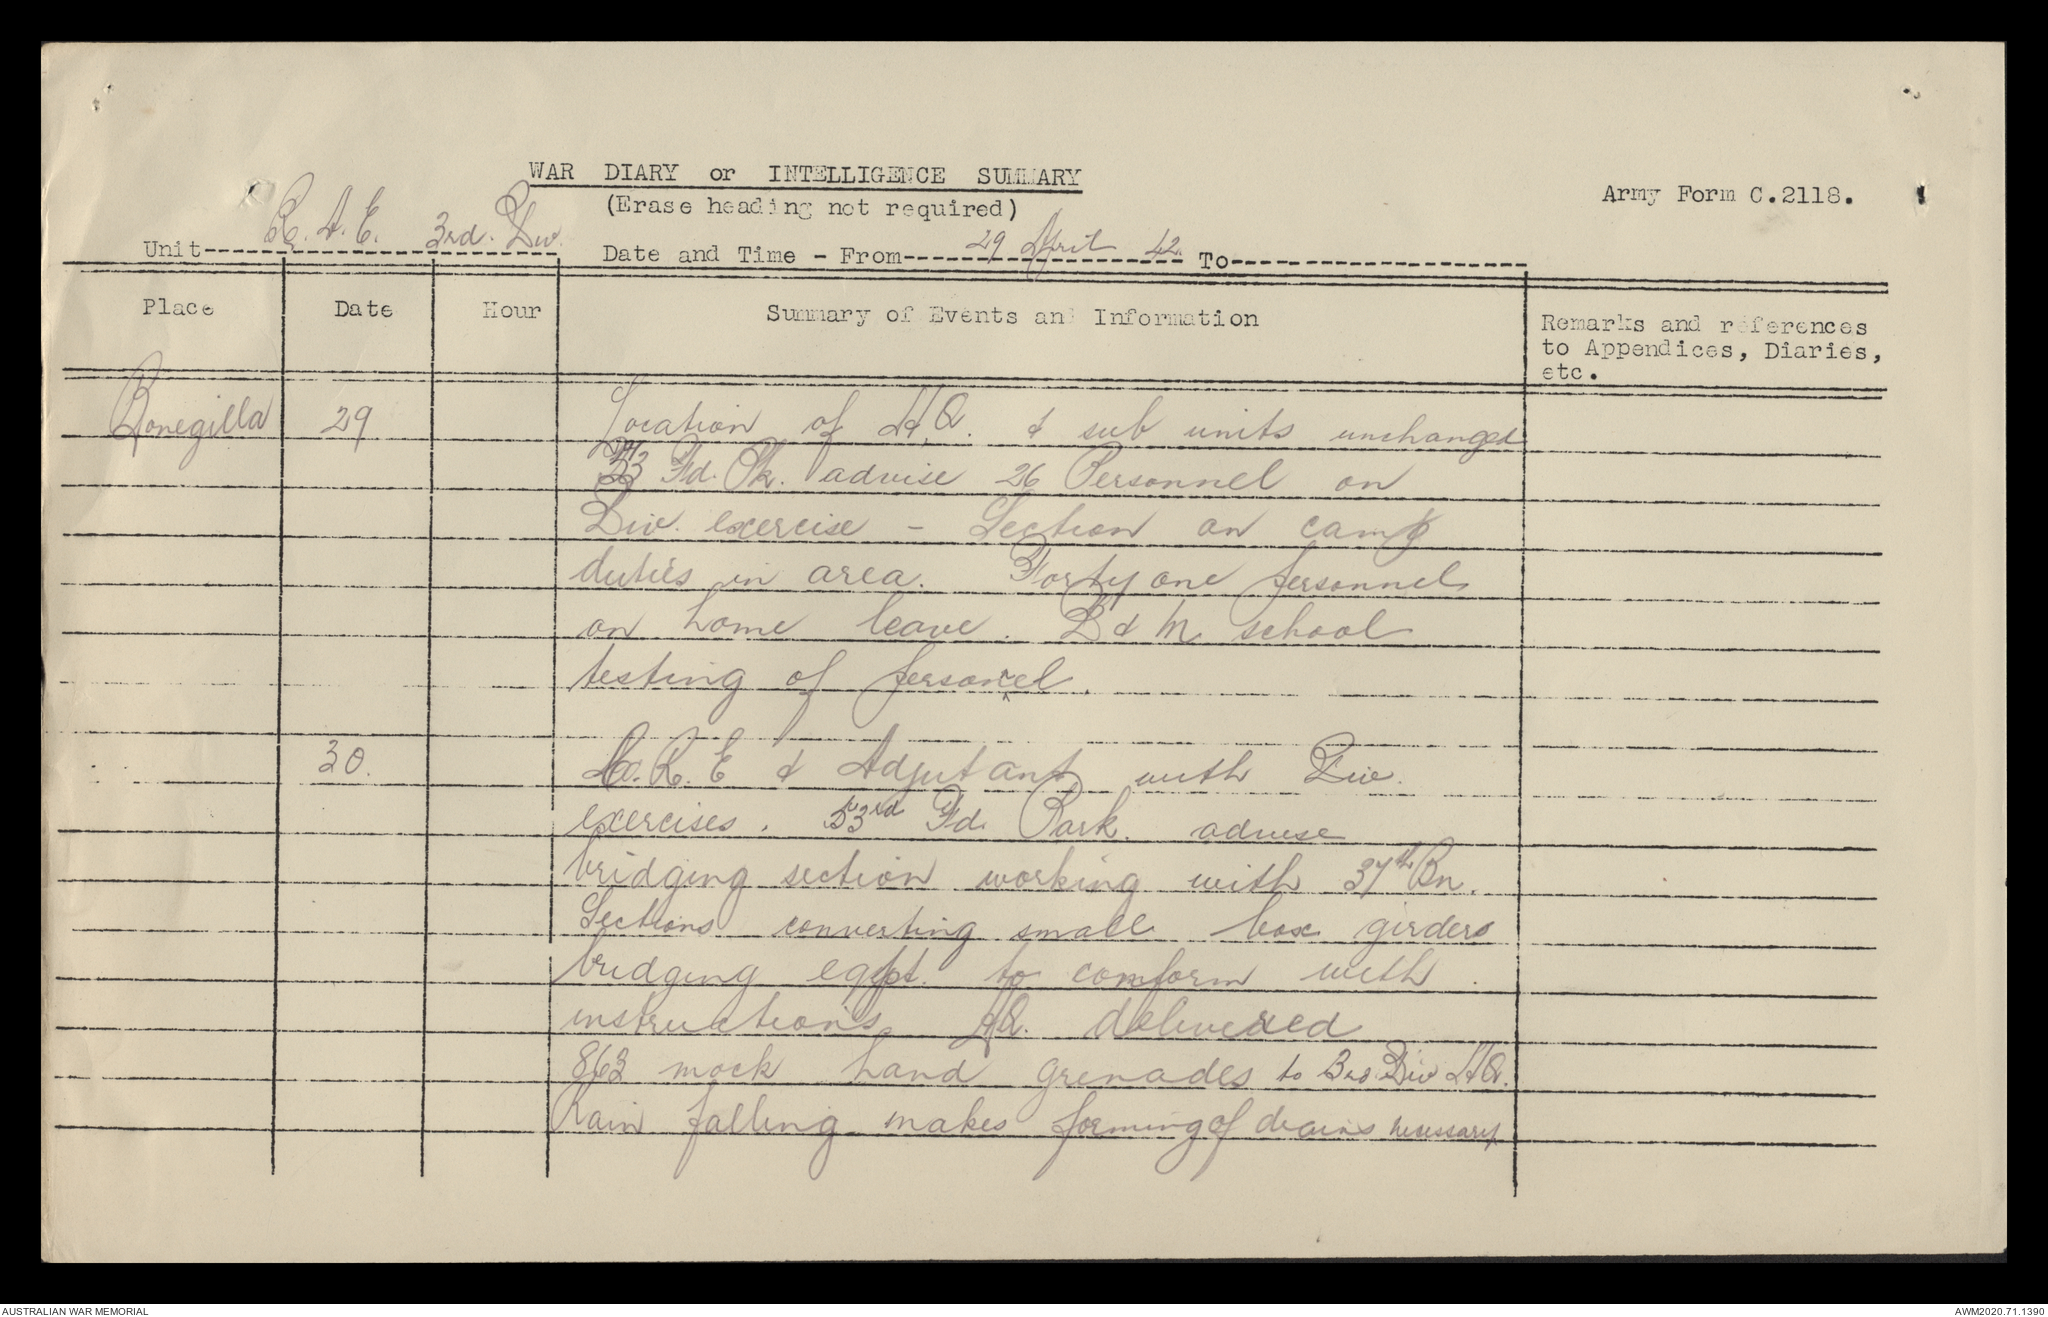 WAR DIARY or INTELLIGENCE SUMMARY
(Erase heading not required)
Army Form C.2118.
Unit R.A.E. 3rd. Div.
Date and Time - From 29 April 42. To
Place Date Hour Summary of Events and Information Remarks and references to Appendices, Diaries, etc.
Bonegilla 29 Location of H.Q. & sub units unchanged
Fd. Pk. advise 26 Personnel on
Div. exercise - Section on camp
duties in area. Forty one personnel
on home leave. D & M school
testing of personel.
30. C.R.E & Adjutant with Div.
exercises. 53rd Fd. Park. advise
bridging section working with 37th Bn.
Sections converting small box girders
bridging eqpt. to comform with
instructions HQ. delivered
863 mock hand grenades to 3rd. Div HQ.
Rain falling makes forming of drains necessary
AUSTRALIAN WAR MEMORIAL
AWM2020.71.1390